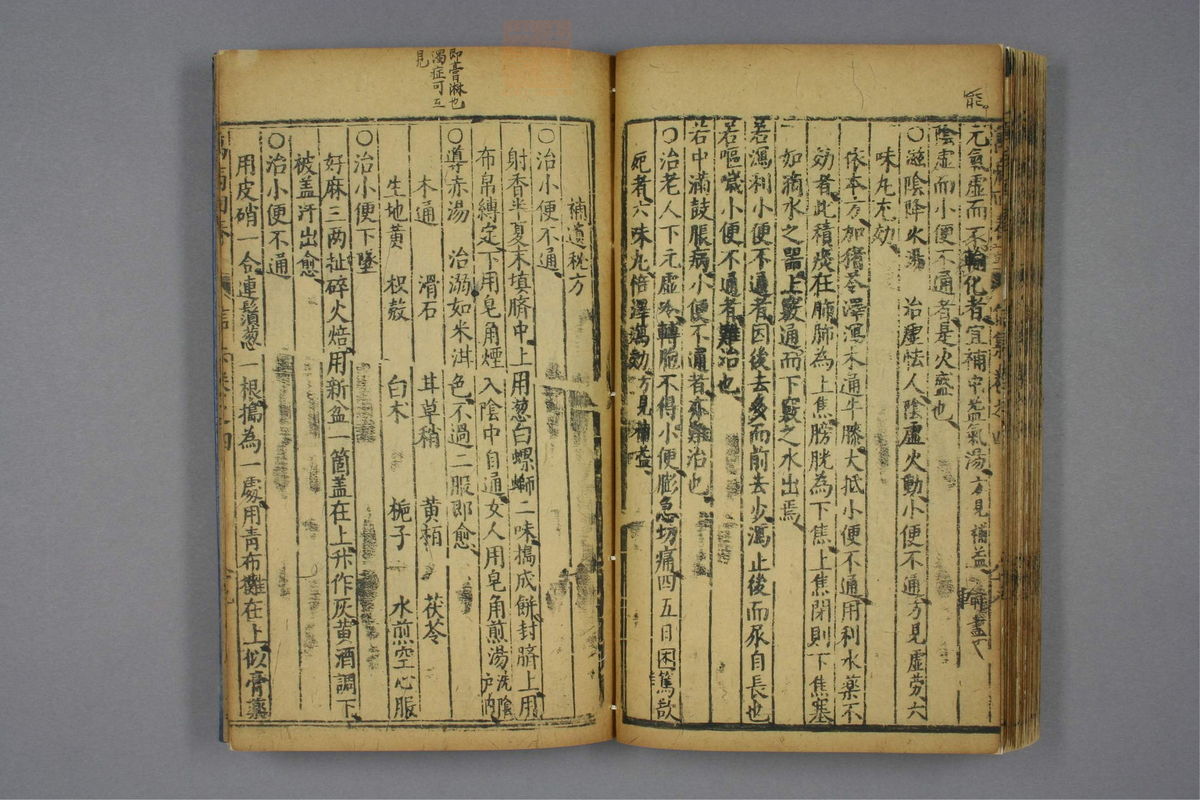 元氣虛而不輸化者宜補中益氣湯方見補益
陰虛而小便不通者是火盛也
○滋陰降火湯　治虛怯人陰虛火動小便不通方見虛勞六
味丸尤効
依本方加猪苓澤瀉木通牛膝大抵小便不通用利水藥不
効者此積痰在肺肺為上焦膀胱為下焦上焦閉則下焦塞
如滴水之器上竅通而下竅之水出焉
若瀉利小便不通者因後去多而前去少瀉止後而尿自長也
若嘔噦小便不通者難治也
若中滿鼓脹病小便不通者亦難治也
○治老人下元虛冷轉脬不得小便膨急切痛四五日困篤欲
死者六味丸倍澤瀉効方見補益
即膏淋也
濁症可互
見
補遺秘方
○治小便不通
射香半夏末填臍中上用葱白螺螄二味搗成餅封臍上用
布帛縛定下用皂角煙入陰中自通女人用皂角煎湯洗陰戶內
○導赤湯　治溺如米泔色不過二服即愈
木通　滑石　甘草稍　黃栢　茯苓
生地黃　枳殼　白木　梔子　水煎空心服
○治小便下墜
好麻三两扯碎火焙用新盆一箇盖在上升作灰黃酒調下
被盖汗出愈
○治小便不通
用皮硝一合連鬚葱一根搗為一處用青布攤在上似膏藥